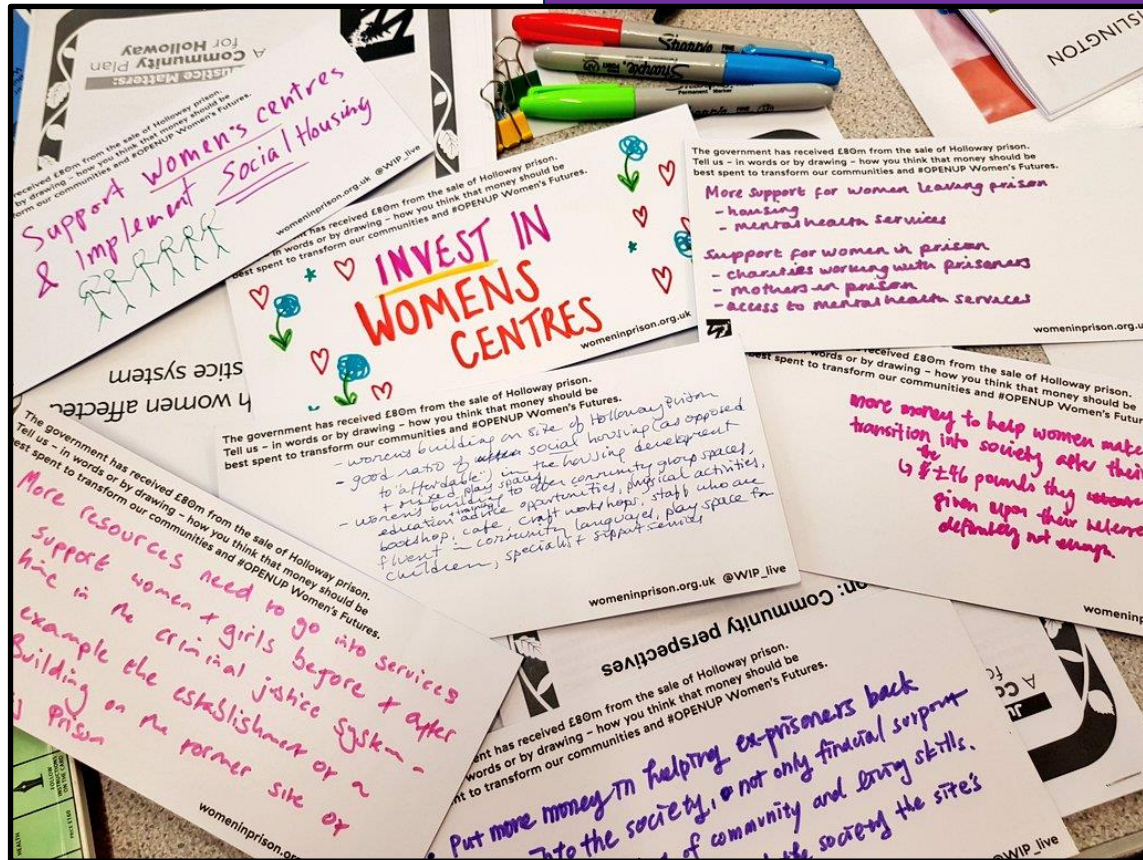 A Community Plan
for Holloway
Justice Matters:
received £80m from the sale of Holloway prison.
by drawing – how you think that money should be
form our communities and #OPENUP Women's Futures.
Support women's centres
& Implement Social Housing
womeninprison.org.uk @WIP_live
Sharpie FINE
Sharpie
Permanent Marker
ISLINGTON
ent has received £80m from the sale of Holloway prison.
in words or by drawing – how you think that money should be
best spent to transform our communities and #OPENUP Women's Futures.
INVEST IN
WOMENS
CENTRES
womeninprison.org.uk
The government has received £80m from the sale of Holloway prison.
Tell us – in words or by drawing – how you think that money should be
best spent to transform our communities and #OPENUP Women's Futures.
More support for women leaving prison
- housing
- mental health services
Support for women in prison
- charities working with prisoners
- mothers in prison
- access to mental health services
womeninprison.org.u
h women affected
stice system
The government has received £80m from the sale of Holloway prison.
Tell us – in words or by drawing – how you think that money should be
best spent to transform our communities and #OPENUP Women's Futures.
- women's building on site of Holloway Prison
- good ratio of social housing (as opposed
to "affordable") in the housing development
+ mixed play spaces
- women's building to offer community group spaces,
education + training advice opportunities, physical activities,
bookshop, cafe, craft workshops, staff who are
fluent in community languages, play space for
children, specialist support services
womeninprison.org.uk @WIP_live
received £80m from the sale of Holloway prison.
or by drawing – how you think that money should be
best spent to transform our communities and #OPENUP Women's Futur
more money to help women make
transition into society after their
↳ the ±46 pounds they
given upon their release
definitely not enough.
womeninp
The government has received £80m from the sale of Holloway prison.
Tell us – in words or by drawing – how you think that money should be
best spent to transform our communities and #OPENUP Women's Futures.
More resources need to go into services
support women + girls before + after
time in the criminal justice system -
example the establishment of a
Building on the former site of
Prison
womeninprison.or
FOLLOW
INSTRUCTIONS
ON THE CARD
HEALTH
PRICE £160
on: Community perspectives
ent has received £80m from the sale of Holloway prison.
words or by drawing – how you think that money should be
nt to transform our communities and #OPENUP Women's Futures.
Put more money in helping ex-prisoners back
into the society, not only finacial surport
of community and living skills.
the society the site's
@WIP_live